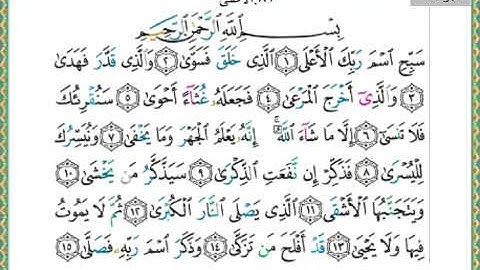 بِسْمِ اللَّهِ الرَّحْمَٰنِ الرَّحِيمِ
سَبِّحِ اسْمَ رَبِّكَ الْأَعْلَى ١ الَّذِي خَلَقَ فَسَوَّىٰ ٢ وَالَّذِي قَدَّرَ فَهَدَىٰ
٣ وَالَّذِي أَخْرَجَ الْمَرْعَىٰ ٤ فَجَعَلَهُ غُثَاءً أَحْوَىٰ ٥ سَنُقْرِئُكَ
فَلَا تَنسَىٰ ٦ إِلَّا مَا شَاءَ اللَّهُ ۚ إِنَّهُ يَعْلَمُ الْجَهْرَ وَمَا يَخْفَىٰ ٧ وَنُيَسِّرُكَ
لِلْيُسْرَىٰ ٨ فَذَكِّرْ إِن نَّفَعَتِ الذِّكْرَىٰ ٩ سَيَذَّكَّرُ مَن يَخْشَىٰ ١٠
وَيَتَجَنَّبُهَا الْأَشْقَى ١١ الَّذِي يَصْلَى النَّارَ الْكُبْرَىٰ ١٢ ثُمَّ لَا يَمُوتُ
فِيهَا وَلَا يَحْيَىٰ ١٣ قَدْ أَفْلَحَ مَن تَزَكَّىٰ ١٤ وَذَكَرَ اسْمَ رَبِّهِ فَصَلَّىٰ ١٥